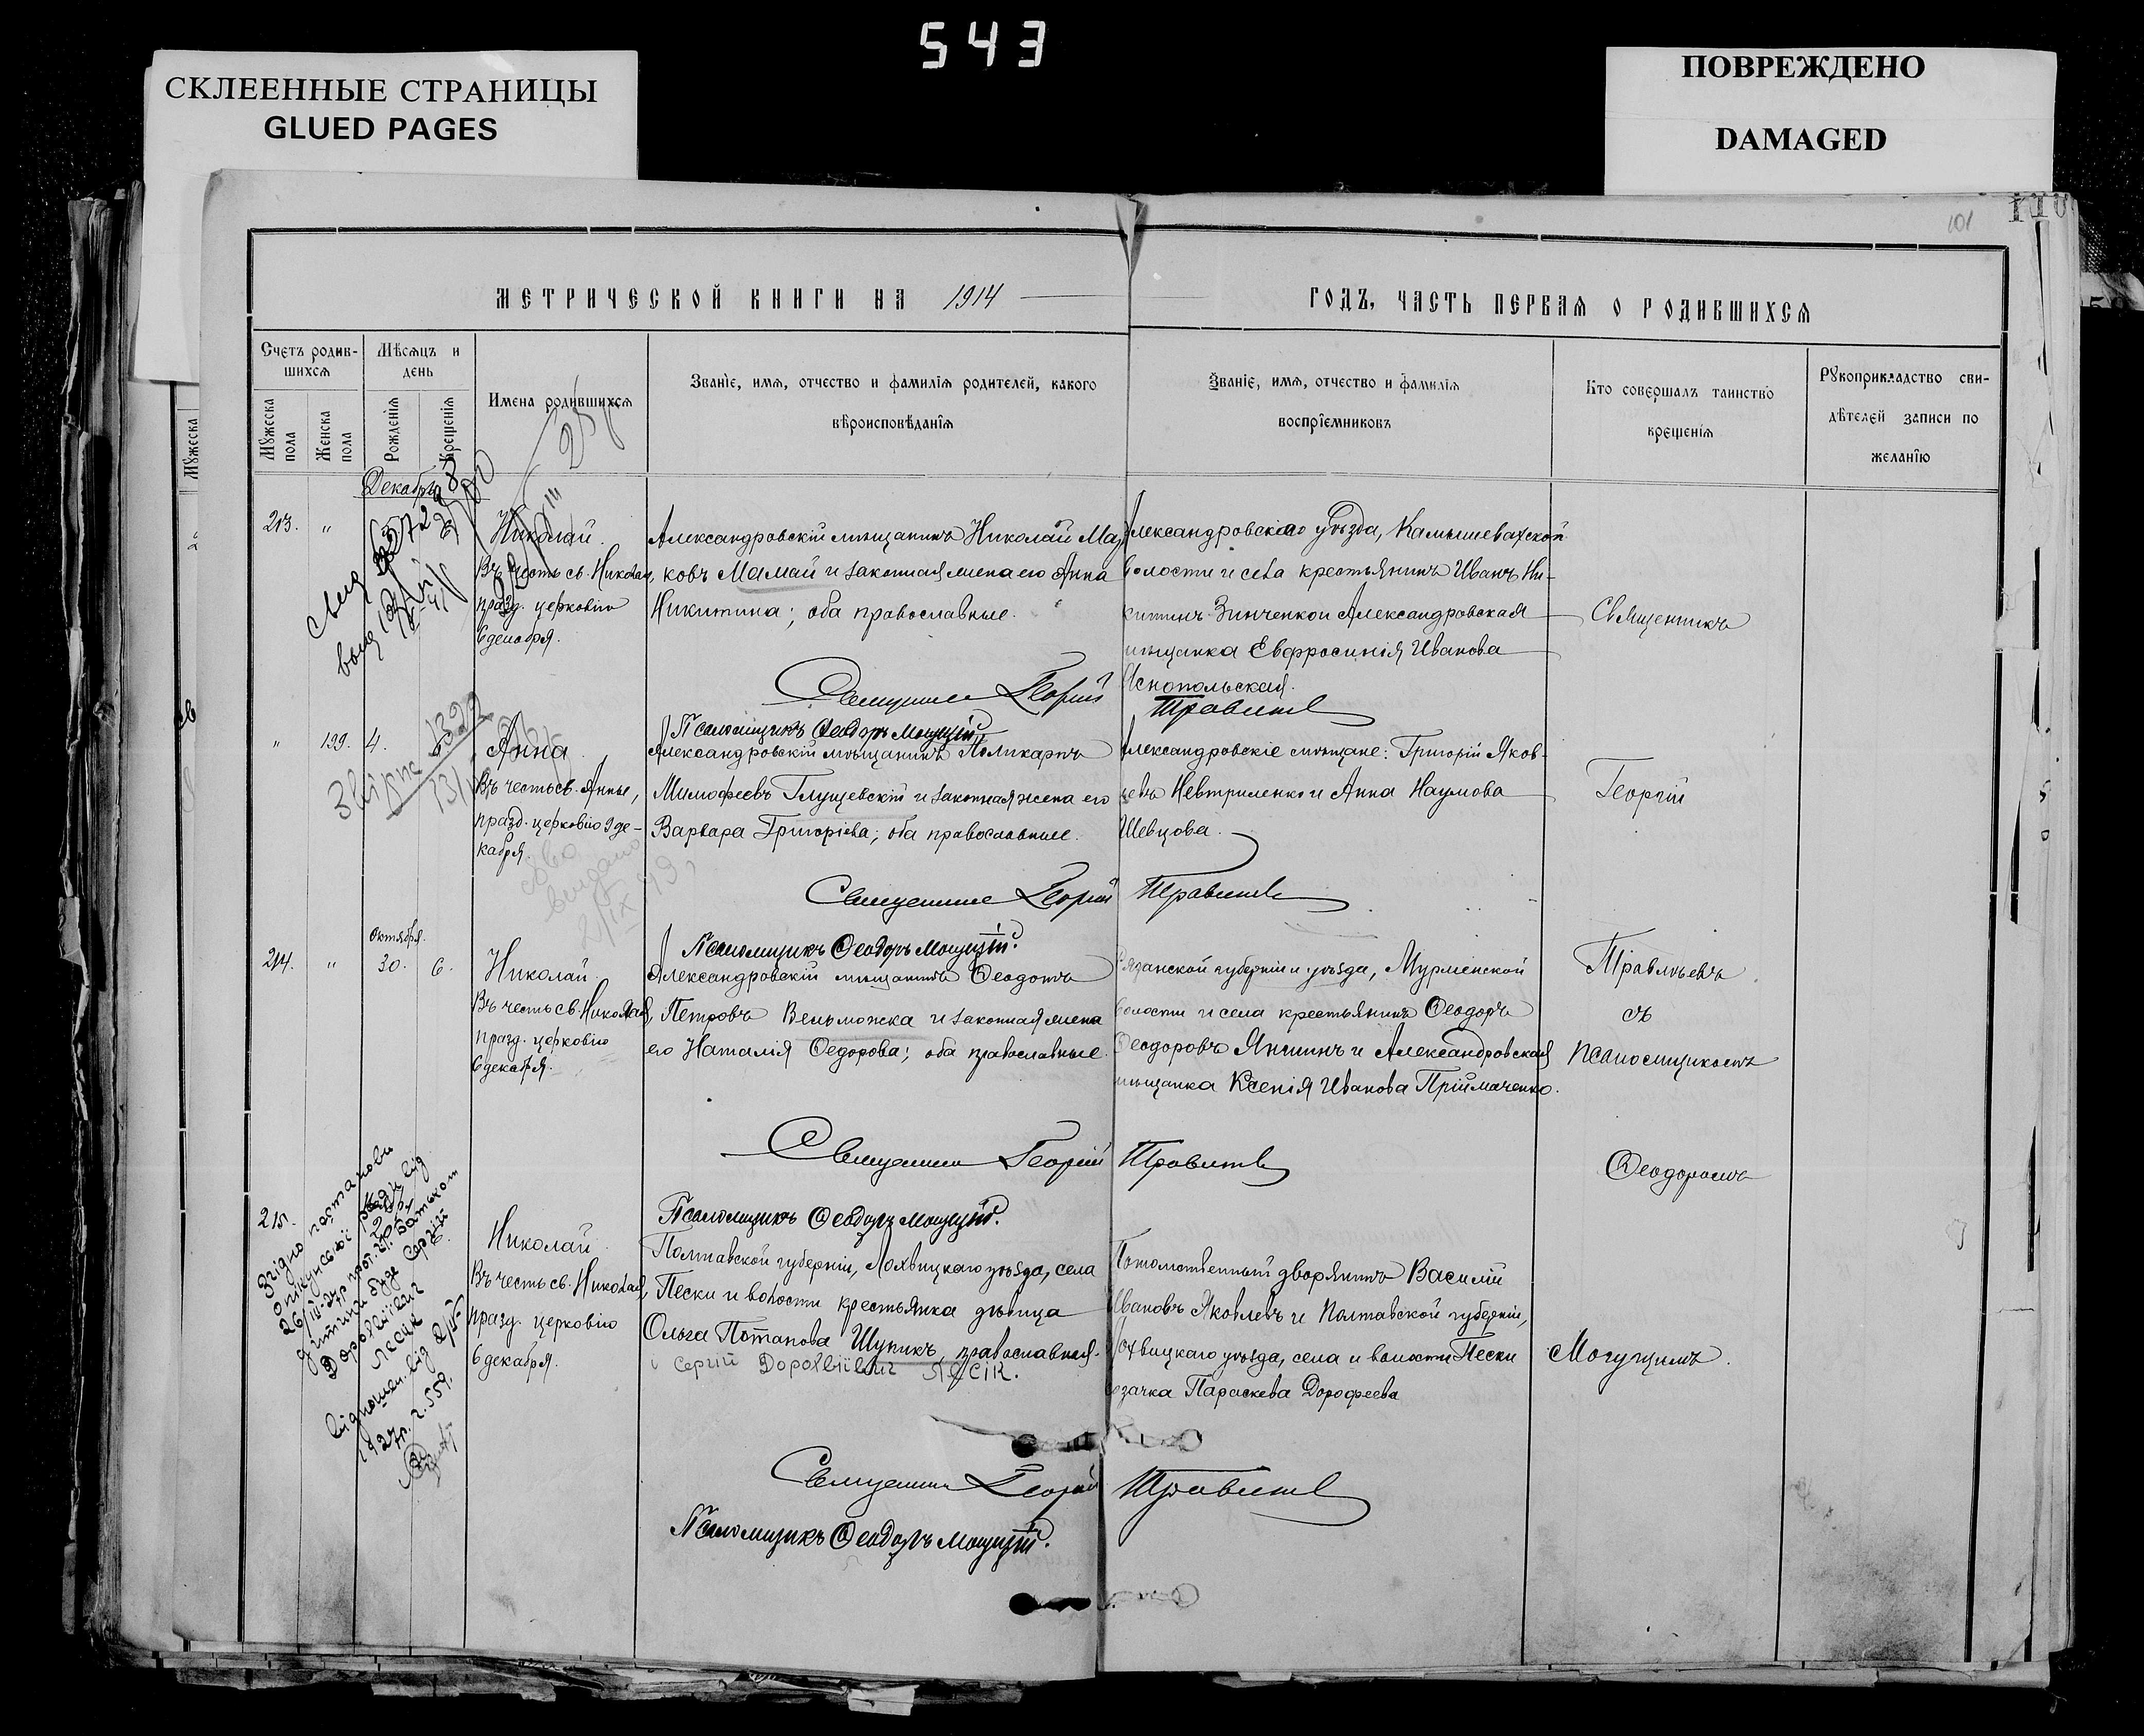 543
СКЛЕЕННЫЕ СТРАНИЦЫ
GLUED PAGES
ПОВРЕЖДЕНО
DAMAGED
101
110
МЕТРИЧЕСКОЙ КНИГИ НА 1914
ГОДЪ, ЧАСТЬ ПЕРВАЯ О РОДИВШИХСЯ
Счетъ родив-
шихся
Мужеска
пола
Женска
пола
Мѣсяцъ и
день
Рожденія
Крещенія
Имена родившихся
Званіе, имя, отчество и фамилія родителей, какого
вѣроисповѣданія
Званіе, имя, отчество и фамилія
воспріемниковъ
Кто совершалъ таинство
крещенія
Рукоприкладство сви-
дѣтелей записи по
желанію
Мужеска
Декабрь
213. "
Николай.
Въ честь св. Николая,
празд. церковію
6 декабря.
Александровскій мѣщанинъ Николай Мар-
ковъ Мамай и законная жена его Анна
Никитина; оба православные.
Александровскаго уѣзда, Камышевахской
волости и села крестьянинъ Иванъ Ни-
китинъ Зинченко и Александровская
мѣщанка Евфросинія Иванова
Яснопольская.
Священникъ
Священникъ Георгій
Псаломщикъ Ѳеодоръ Могущій.
" 199. 4.
Анна
Въ честь св. Анны,
празд. церковію 9 де-
кабря.
Александровскій мѣщанинъ Поликарпъ
Тимофеевъ Глущевскій и законная жена его
Варвара Григоріева; оба православные.
Александровскіе мѣщане: Григорій Яков-
левъ Невтриленко и Анна Наумова
Шевцова.
Георгій
Священникъ Георгій
Псаломщикъ Ѳеодоръ Могущій.
октября.
214. " 30. 6.
Николай.
Въ честь св. Николая,
празд. церковію
6 декабря.
Александровскій мѣщанинъ Ѳеодотъ
Петровъ Вельможка и законная жена
его Наталія Ѳедорова; оба православные.
Рязанской губерніи и уѣзда, Мурминской
волости и села крестьянинъ Ѳеодоръ
Ѳеодоровъ Яншинъ и Александровская
мѣщанка Ксенія Иванова Приймаченко.
съ
псаломщикомъ
Священникъ Георгій
Ѳеодоромъ
Псаломщикъ Ѳеодоръ Могущій.
215.
Николай.
Въ честь св. Николая,
празд. церковію
6 декабря.
Полтавской губерніи, Лохвицкаго уѣзда, села
Пески и волости крестьянка дѣвица
Ольга Потапова Шупикъ, православная.
і Сергій Дорофійович ЛЯСІК.
Потомственный дворянинъ Василій
Ивановъ Яковлевъ и Полтавской губерніи,
Лохвицкаго уѣзда, села и волости Пески
козачка Параскева Дорофеева
Могущимъ.
Згідно постанови
опікунської ради від
Священникъ Георгій
Псаломщикъ Ѳеодоръ Могущій.